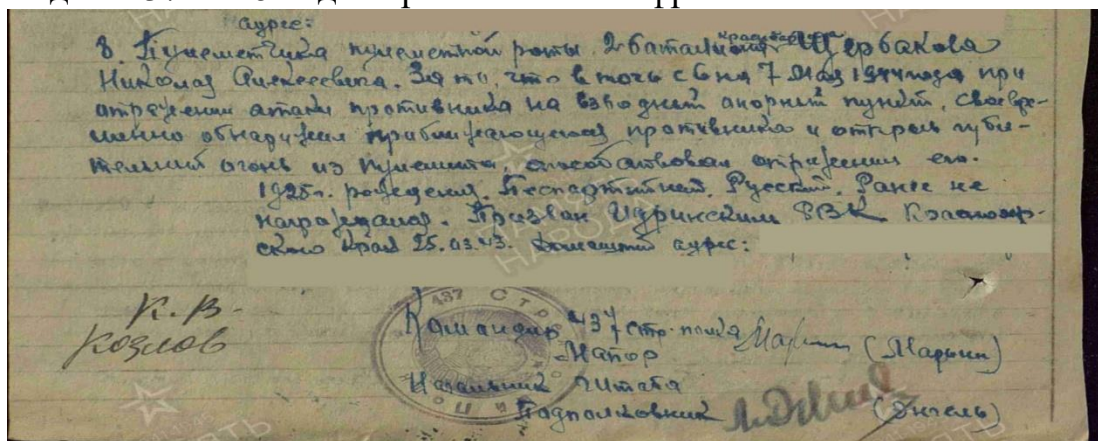 адрес:
8. Пулеметчика пулеметной роты 2 батальона красноармейца Щербакова
Николая Алексеевича. За то, что в ночь с 6 на 7 Мая 1944 года при
отражении атаки противника на взводный опорный пункт, своевре-
менно обнаружил приближающегося противника и открыв губи-
тельный огонь из пулемета, способствовал отражению его.
1925 г. рождения. Беспартийный. Русский. Ранее не
награждался. Призван Идринским РВК Краснояр-
ского края 25.03.43. Домашний адрес:
К. В.
Козлов
437 Стр
Командир 437 стр. полка (Марьин)
Майор
Начальник Штаба
Подполковник (Энгель)
ПАМЯТЬ
НАРОДА